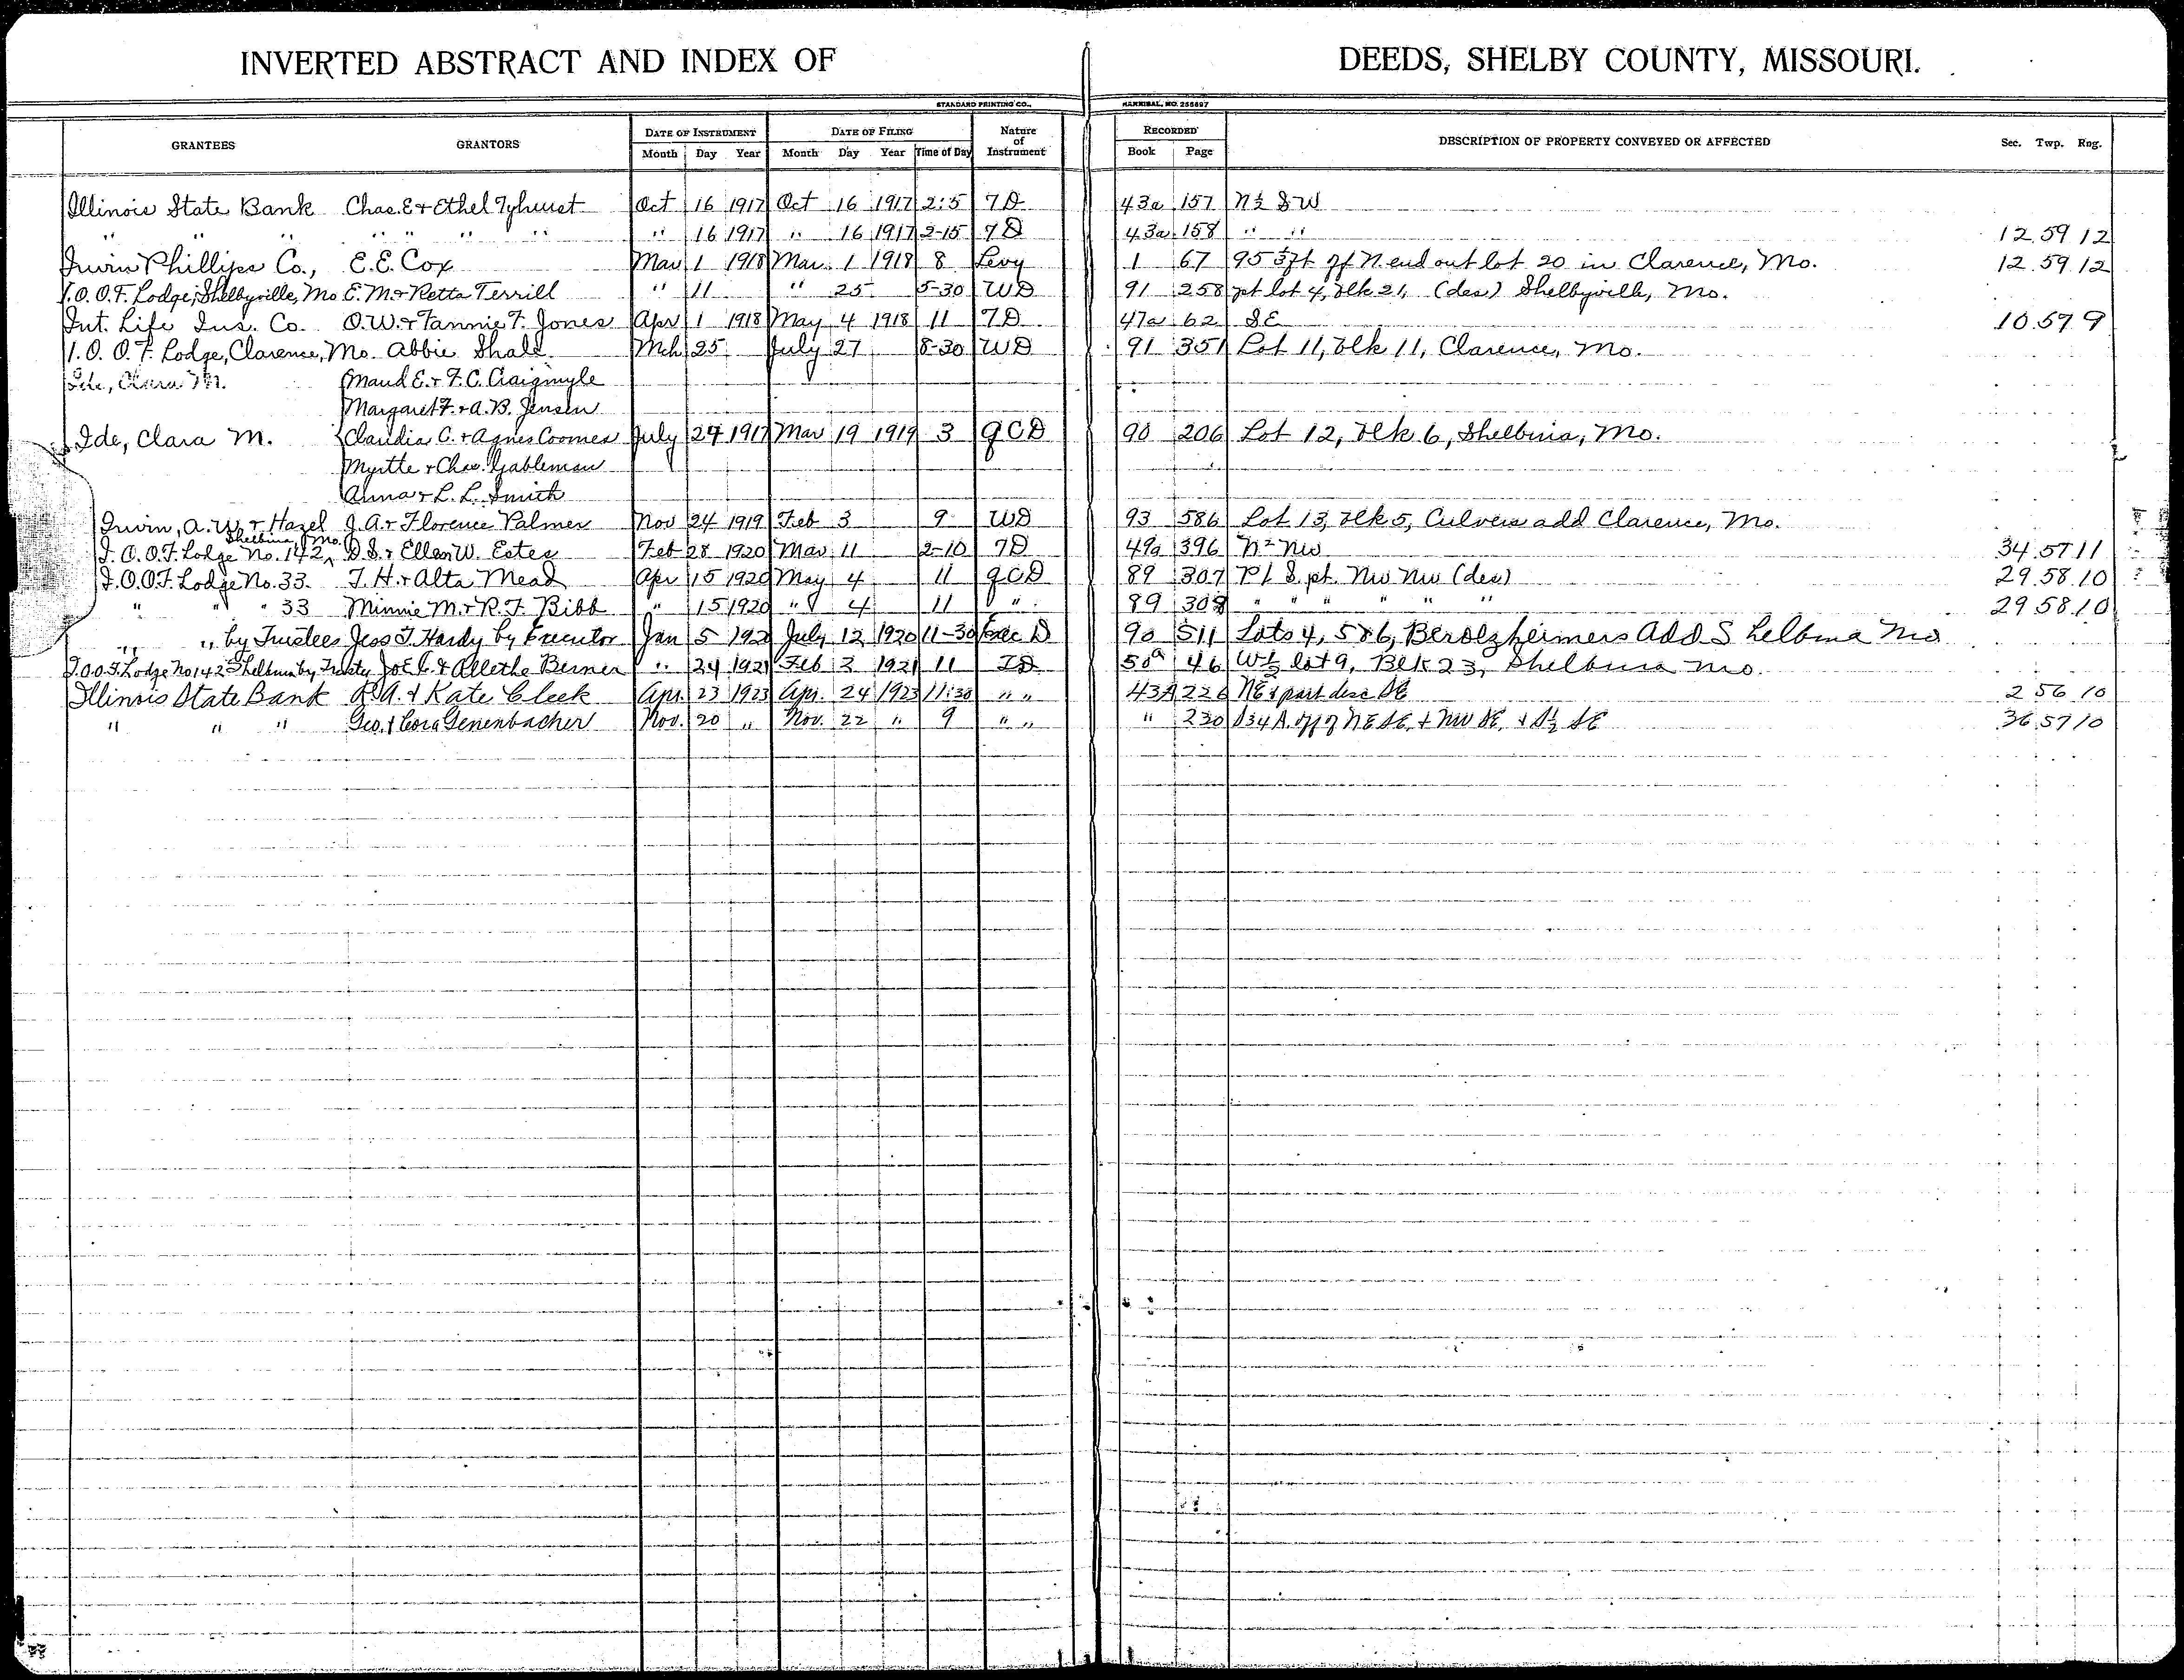 INVERTED ABSTRACT AND INDEX OF DEEDS, SHELBY COUNTY, MISSOURI.
STANDARD PRINTING CO., HANNIBAL, MO. 255897
GRANTEES GRANTORS DATE OF INSTRUMENT DATE OF FILING Nature of Instrument RECORDED DESCRIPTION OF PROPERTY CONVEYED OR AFFECTED Sec. Twp. Rng.
Month Day Year Month Day Year Time of Day Book Page
Illinois State Bank Chas. E + Ethel Tyhurst Oct 16 1917 Oct 16 1917 2:5 TD 43a 157 N½ SW
" " " " " " " " 16 1917 " 16 1917 2-15 TD 43a 158 " " 12 59 12
Irwin Phillips Co., E. E. Cox Mar 1 1918 Mar. 1 1918 8 Levy 1 67 95 ft of N end out lot 20 in Clarence, Mo. 12 59 12
I.O.O.F. Lodge, Shelbyville, Mo E. M. + Retta Terrill " 11 " 25 5-30 WD 91 258 pt lot 4, blk 21, (des) Shelbyville, Mo.
Int. Life Ins. Co. O. W. + Fannie F. Jones Apr 1 1918 May 4 1918 11 TD 47a 62 SE 10 57 9
I. O. O. F. Lodge, Clarence, Mo. Abbie Shale Mch 25 July 27 8-30 WD 91 351 Lot 11, blk 11, Clarence, Mo.
Ide, Clara M. Maud E. + F. C. Craigmyle
Margaret F. + A. B. Jensen
Ide, Clara M. Claudia C. + Agnes Coomes July 24 1917 Mar 19 1919 3 QCD 90 206 Lot 12, blk 6, Shelbina, Mo.
Myrtle + Chas. Gableman
Anna + L. L. Smith
Irwin, A. W. + Hazel J. A. + Florence Palmer Nov 24 1919 Feb 3 9 WD 93 586 Lot 13, blk 5, Culvers add Clarence, Mo.
Shelbina, Mo.
I. O. O. F. Lodge No. 142 D. S. + Ellen W. Estes Feb 28 1920 Mar 11 2-10 TD 49a 396 N½ NW 34 57 11
I. O. O. F. Lodge No. 33. T. H. + Alta Mead Apr 15 1920 May 4 11 QCD 89 307 Pt S. pt. NW NW (des) 29 58 10
" " " 33 Minnie M. + R. F. Bibb " 15 1920 " 4 11 " 89 308 " " " " " 29 58 10
" " by Trustees Jess T. Hardy by Executor Jan 5 192 July 12 1920 11-30 Exec D 90 511 Lots 4, 5 & 6, Berolzheimers Add Shelbina Mo
I.O.O.F. Lodge No 142 Shelbina by Trustees Joe C. & Allethe Berner " 24 1921 Feb 2 1921 11 TD 50a 46 W½ lot 9, Blk 23, Shelbina Mo.
Illinois State Bank R. A. & Kate Cleek Apr. 23 1923 Apr. 24 1923 11:30 " " 43A 226 NE & part desc SE 2 56 10
" " " Geo. & Cora Genenbacher Nov. 20 " Nov. 22 " 9 " " " 230 S34 A. off of NE SE, & NW SE, & S½ SE 36 57 10